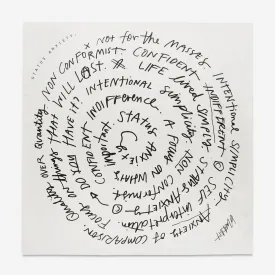 STATUS ANXIETY.
× NOT for the MASSES INTENTIONAL SIMPLICITY
ANXIETY of COMPARISON
Quality OVER Quantity
NON CONFORMIST. CONFIDENT
INDEPENDENT @ SELF interpretation.
Focus on things THAT WILL LAST.
LIFE lived simply. STATUS ANXIETY @
DO YOU HAVE IT? INTENTIONAL simplicity
NON CONFORMIST
CONFIDENT INDIFFERENCE. A FOCUS ON WHAT'S
important
STATUS ANXIETY